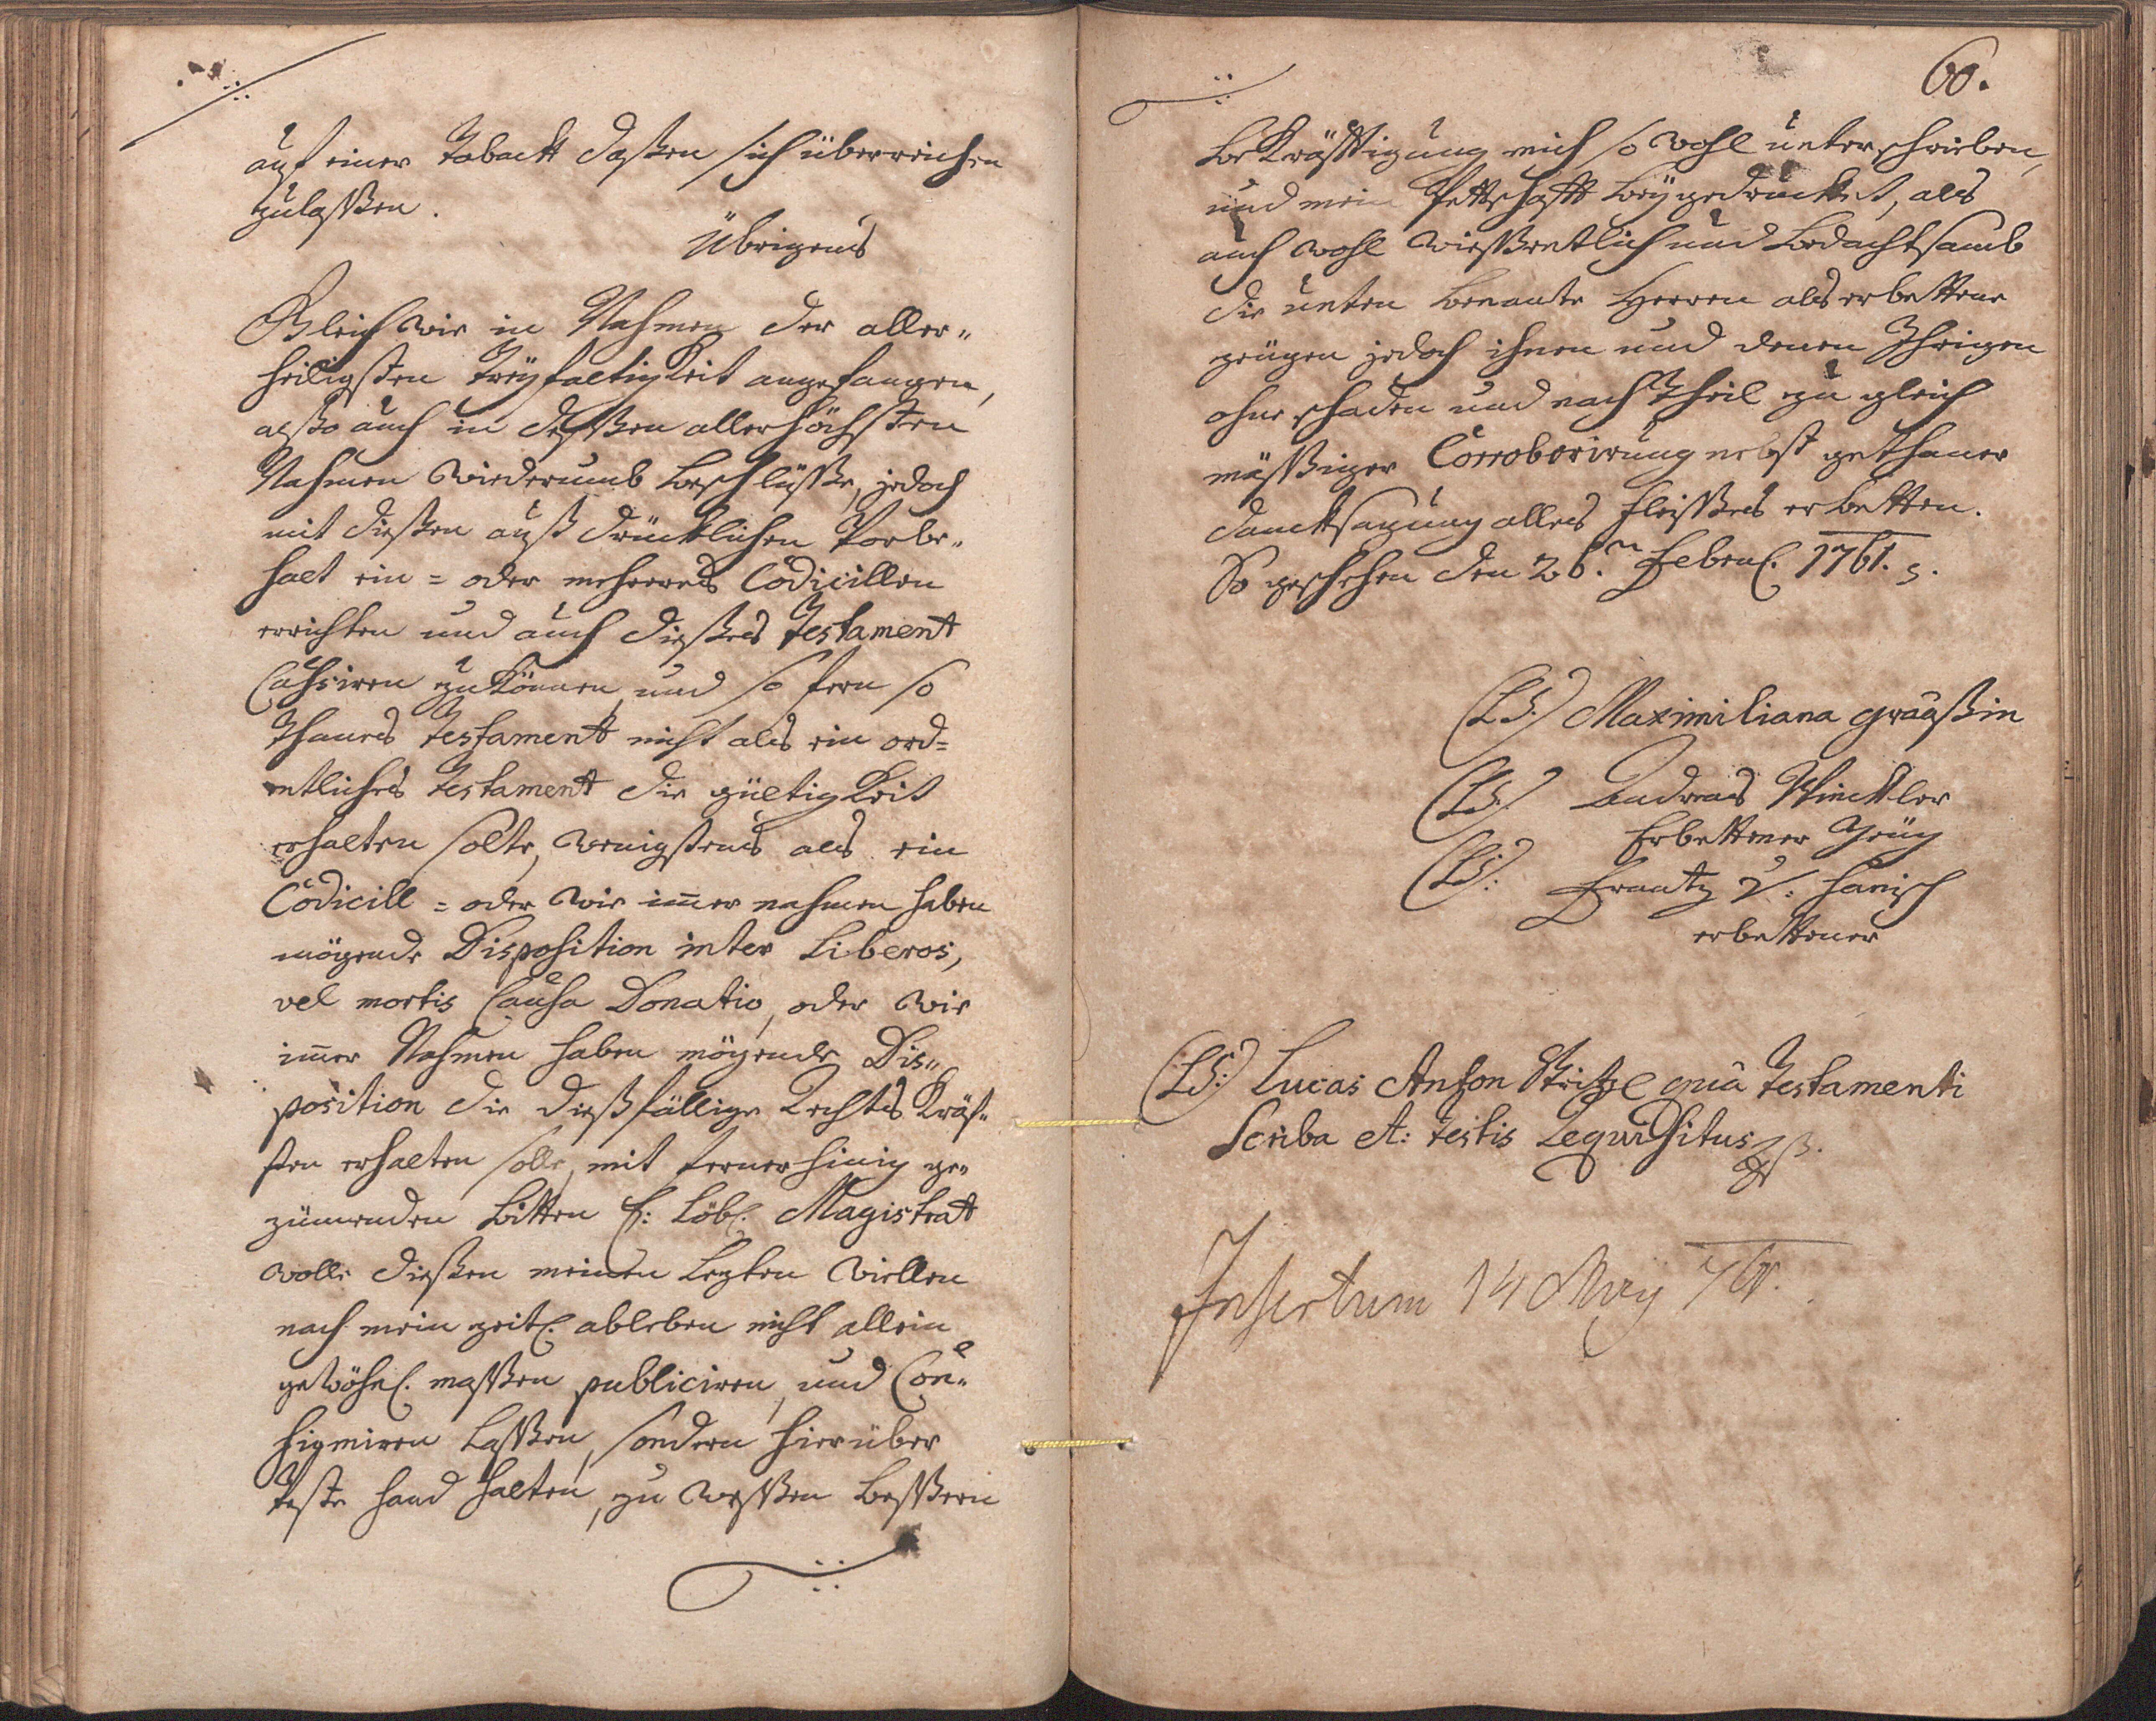 auf einer Taback dosßen sich überreichen
zulasßen.
Übrigens
Gleich wie in Nahmen der aller„
heiligsten Dreyfaltigkeit angefangen,
alßo auch in dessßen allerhöchsten
Nahmen wiederumb beschlüsße, jedoch
mit dießen auß drücklichen Vorbe„
halt ein = oder mehreres Codicillen
errichten und auch dießes Testament
Cassiren zu können, und so fern so
thanes Testament nicht als ein ord=
entliches Testament die gültigkeit
erhalten solte, wenigstens als ein
Codicill = oder wie im̅er nahmen haben
mögende Disposition inter Liberos,
vel mortis Causa Donatio, oder wie
im̅er Nahmen haben mögende Dis„
position die dießfällige Rechts Kräf„
ten erhalten solle, mit fernerhinig ge„
zimenden bitten E: Löbl. Magistrat
wolle dießen meinen lezten Willen
nach mein zeitl. ableben nicht allein
gewöhnl. masßen publiciren, und Con„
firmiren lasßen, sondern hierüber
feste hand halten, zu wesßen besßern
60.
bekräfftigung mich so wohl unterschrieben,
und mein Pettschafft beygedrucket, als
auch wohl wiesßentlich und bedachtsamb
die unten benante Herren als erbettene
zeügen jedoch ihnen und denen Ihrigen
ohne schaden und nachtheil zu gleich
mäsßiger Corroborirung nebst gethaner
dancksagung alles fleisßes erbetten.
So geschehen den 26.n Febru. 1761.
(L.S.) Maximiliana graaßin
(L.S.) Andreas Winckler
Erbettener Zeüg
(L.S.) Frantz V: hanisch
erbettener
(L.S.) Lucas Anton Stritzl quà Testamenti
Scriba et: testis Requisitus
Insertum 14 May 761.